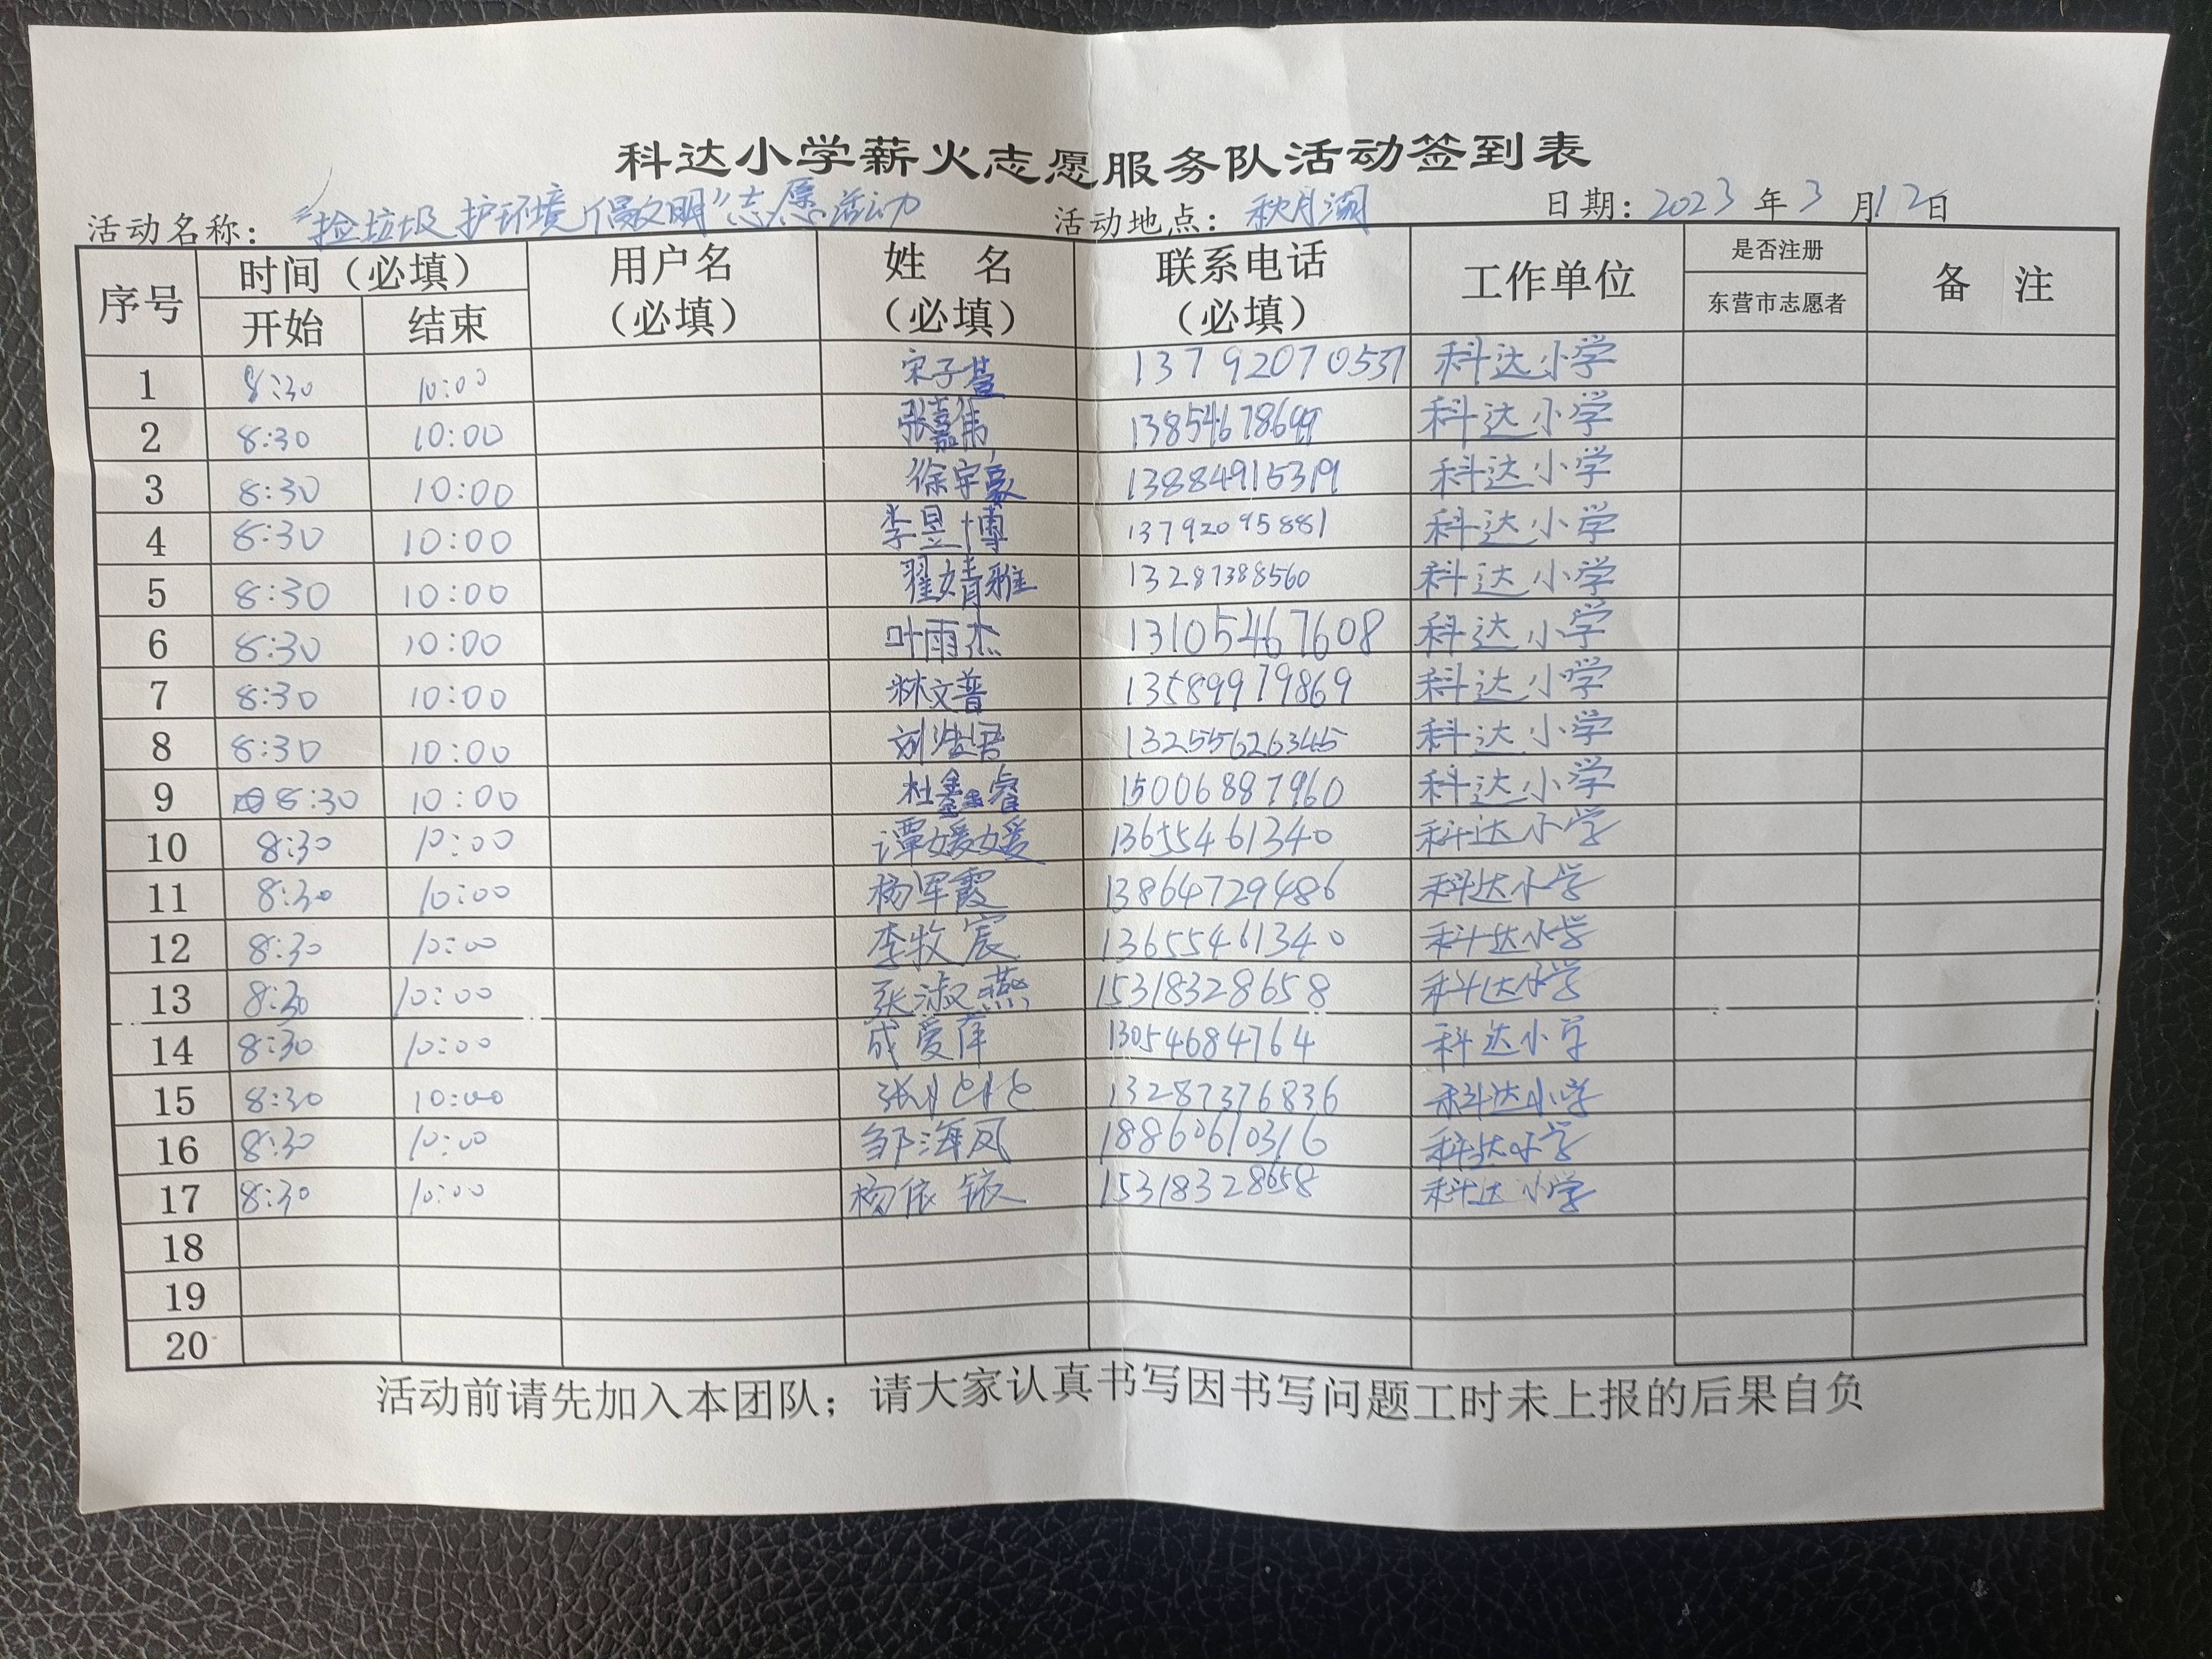 科达小学薪火志愿服务队活动签到表
活动名称：“捡垃圾 护环境 倡文明”志愿活动 活动地点：秋月湖 日期：2023年3月12日
序号 时间（必填） 用户名（必填） 姓 名（必填） 联系电话（必填） 工作单位 是否注册 备 注
开始 结束 东营市志愿者
1 8:30 10:00 宋子 13792070537 科达小学
2 8:30 10:00 张嘉伟 138546786 科达小学
3 8:30 10:00 徐宇豪 13884915319 科达小学
4 8:30 10:00 李昱博 13792095881 科达小学
5 8:30 10:00 翟婧雅 13287388560 科达小学
6 8:30 10:00 叶雨杰 13105467608 科达小学
7 8:30 10:00 林文普 13589979869 科达小学
8 8:30 10:00 刘 13255626345 科达小学
9 8:30 10:00 杜鑫睿 15006887960 科达小学
10 8:30 10:00 谭媛媛 13655461340 科达小学
11 8:30 10:00 杨军霞 13864729486 科达小学
12 8:30 10:00 李牧宸 13655461340 科达小学
13 8:30 10:00 张淑燕 15318328658 科达小学
14 8:30 10:00 成爱萍 13054684764 科达小学
15 8:30 10:00 张 13287376836 科达小学
16 8:30 10:00 邹海凤 18860610316 科达小学
17 8:30 10:00 杨依 15318328658 科达小学
18
19
20
活动前请先加入本团队；请大家认真书写因书写问题工时未上报的后果自负